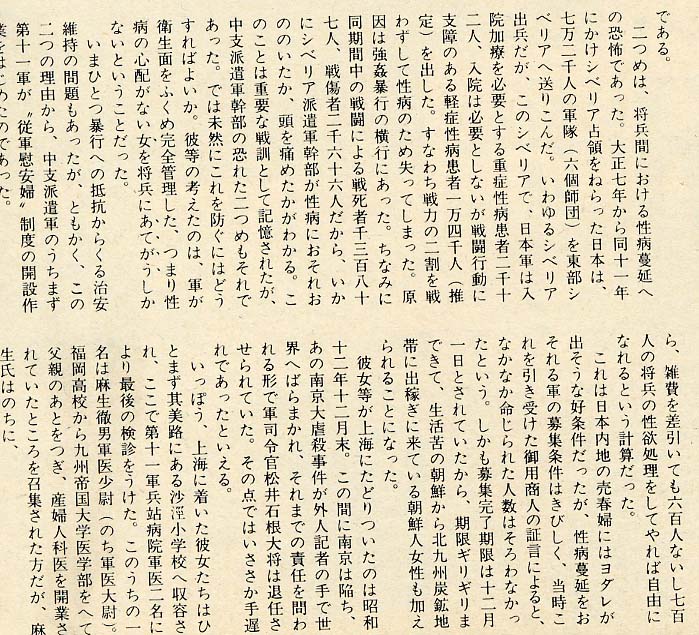 である。
二つめは、将兵間における性病蔓延へ
の恐怖であった。大正七年から同十一年
にかけシベリア占領をねらった日本は、
七万二千人の軍隊（六個師団）を東部シ
ベリアへ送りこんだ。いわゆるシベリア
出兵だが、このシベリアで、日本軍は入
院加療を必要とする重症性病患者二千十
二人、入院は必要としないが戦闘行動に
支障のある軽症性病患者一万四千人（推
定）を出した。すなわち戦力の二割を戦
わずして性病のため失ってしまった。原
因は強姦暴行の横行にあった。ちなみに
同期間中の戦闘による戦死者千三百八十
七人、戦傷者二千六十六人だから、いか
にシベリア派遣軍幹部が性病におそれお
ののいたか、頭を痛めたかがわかる。こ
のことは重要な戦訓として記憶されたが、
中支派遣軍幹部の恐れた二つめもそれで
あった。では未然にこれを防ぐにはどう
すればよいか。彼等の考えたのは、軍が
衛生面をふくめ完全管理した、つまり性
病の心配がない女を将兵にあてがうしか
ないということだった。
いまひとつ暴行への抵抗からくる治安
維持の問題もあったが、ともかく、この
二つの理由から、中支派遣軍のうちまず
第十一軍が〝従軍慰安婦〟制度の開設作
業をはじめたのであった。
ら、雑費を差引いても六百人ないし七百
人の将兵の性欲処理をしてやれば自由に
なれるという計算だった。
これは日本内地の売春婦にはヨダレが
出そうな好条件だったが、性病蔓延をお
それる軍の募集条件はきびしく、当時こ
れを引き受けた御用商人の証言によると、
なかなか命じられた人数はそろわなかっ
たという。しかも募集完了期限は十二月
一日とされていたから、期限ギリギリま
できて、生活苦の朝鮮から北九州炭鉱地
帯に出稼ぎに来ている朝鮮人女性も加え
られることになった。
彼女等が上海にたどりついたのは昭和
十二年十二月末。この間に南京は陥ち、
あの南京大虐殺事件が外人記者の手で世
界へばらまかれ、それまでの責任を問わ
れる形で軍司令官松井石根大将は退任さ
せられていた。その点ではいささか手遅
れであったといえる。
いっぽう、上海に着いた彼女たちはひ
とまず其美路にある沙涇小学校へ収容さ
れ、ここで第十一軍兵站病院軍医二名に
より最後の検診をうけた。このうちの一
名は麻生徹男軍医少尉（のち軍医大尉）。
福岡高校から九州帝国大学医学部をへて
父親のあとをつぎ、産婦人科医を開業さ
れていたところを召集された方だが、麻
生氏はのちに、